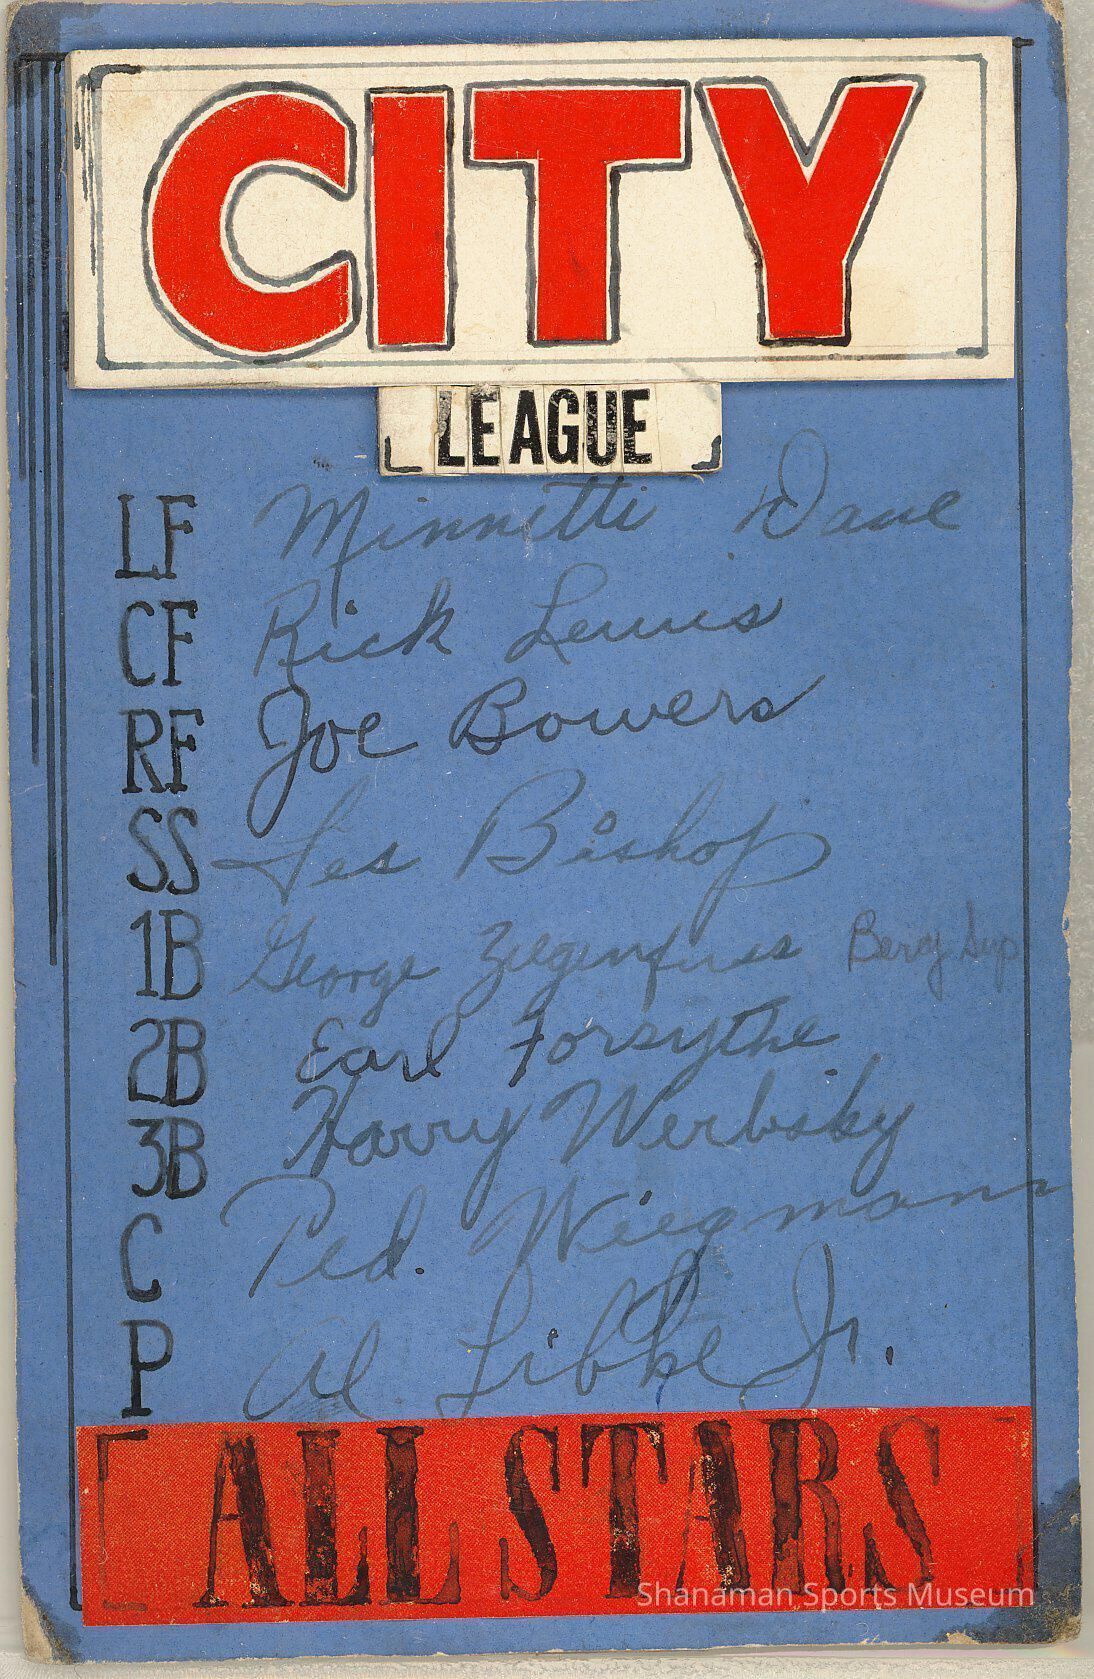 CITY
LEAGUE
LF Minnitti Dave
CF Rick Lewis
RF Joe Bowers
SS Les Bishop
1B George Ziegenfuss
2B Earl Forsythe
3B Harry Werbisky
C Ted. Wiegmann
P Al. Libke Jr.
ALL STARS
Shanaman Sports Museum